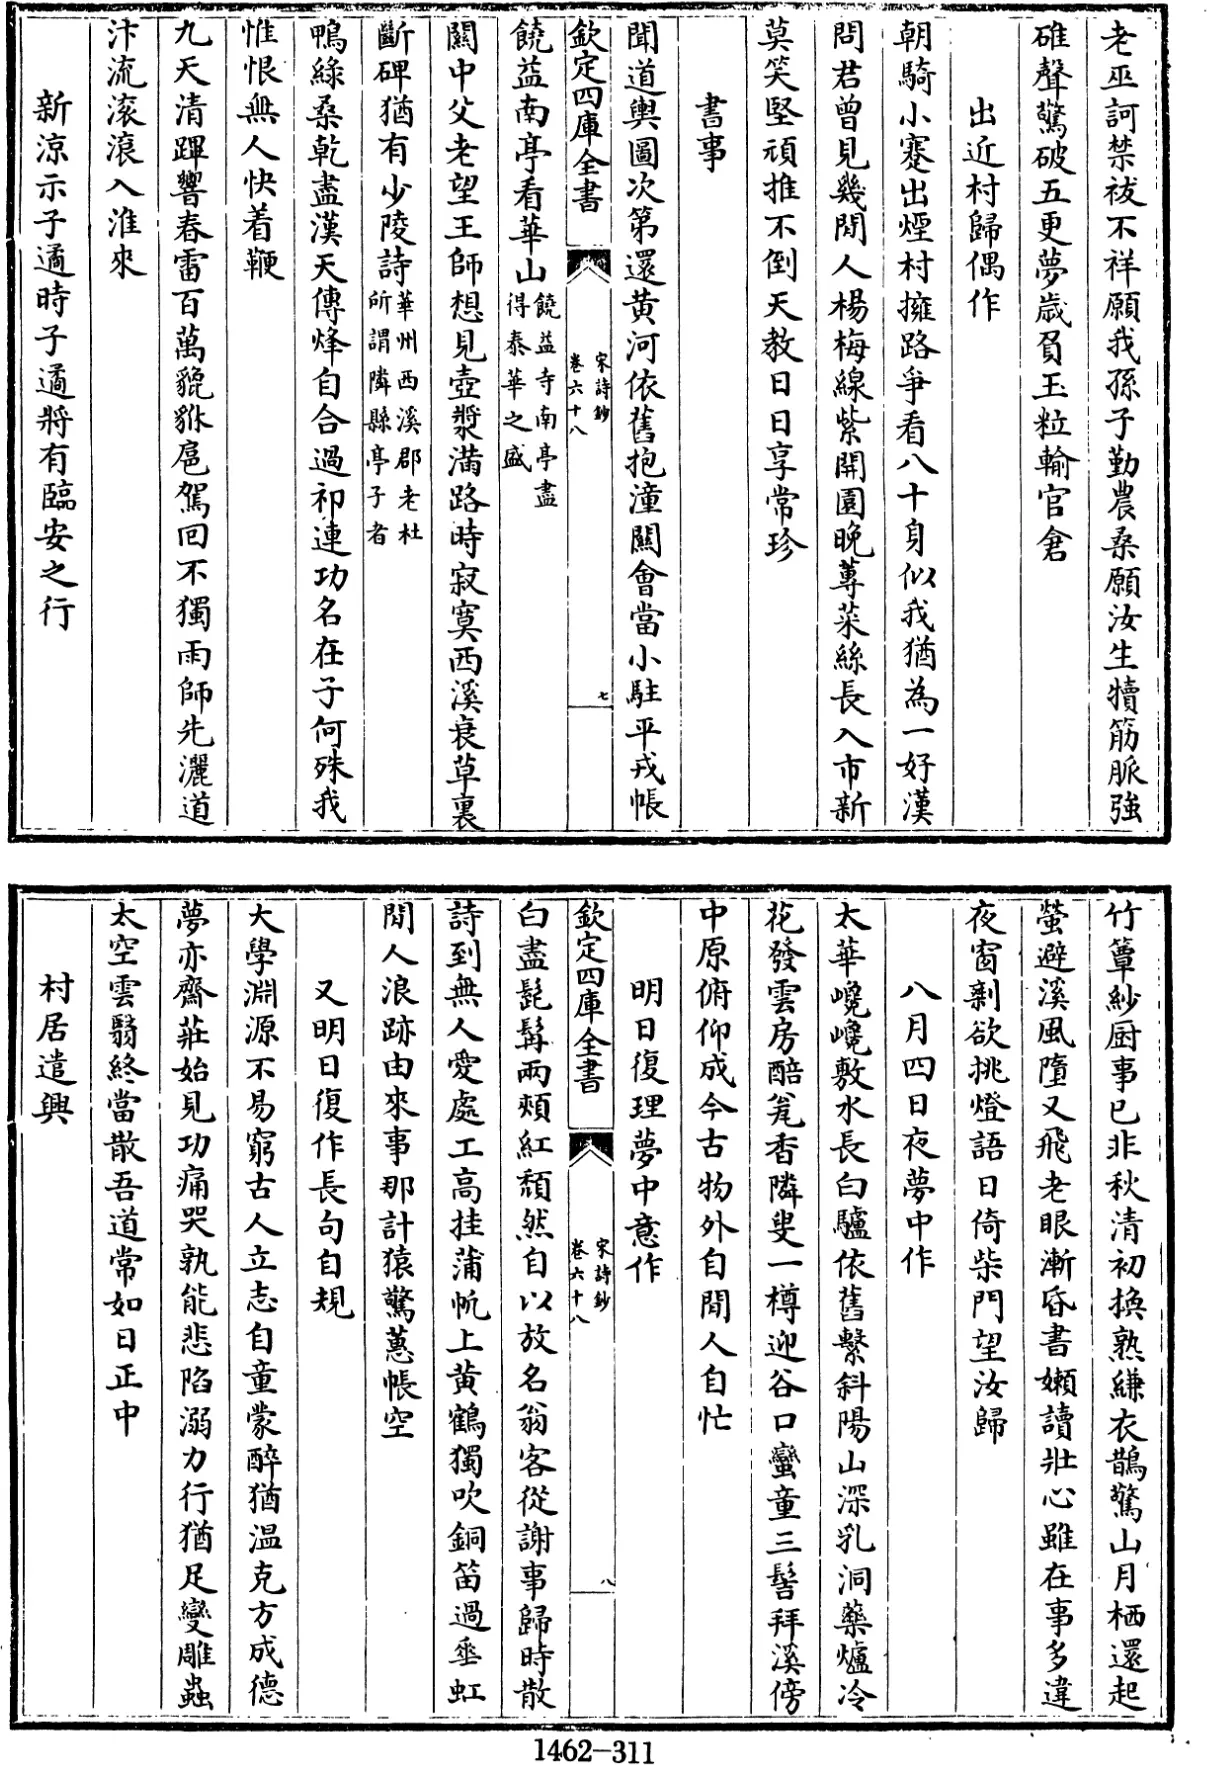 老巫訶禁祓不祥願我孫子勤農桑願汝生犢筋脈強
碓聲驚破五更夢歳負玉粒輸官倉
出近村歸偶作
朝騎小蹇出煙村擁路爭看八十身似我猶為一好漢
問君曾見幾閒人楊梅線紫開園晚蓴菜絲長入市新
莫笑堅頑推不倒天教日日享常珍
書事
聞道輿圖次第還黄河依舊抱潼關會當小駐平戎帳
欽定四庫全書
宋詩鈔
卷六十八
七
饒益南亭看華山饒益寺南亭盡
得泰華之盛
關中父老望王師想見壺漿滿路時寂寞西溪衰草裏
斷碑猶有少陵詩華州西溪郡老杜
所謂隣縣亭子者
鴨綠桑乾盡漢天傳烽自合過祁連功名在子何殊我
惟恨無人快着鞭
九天清蹕響春雷百萬貔貅扈駕回不獨雨師先灑道
汴流滚滾入淮來
新涼示子遹時子遹將有臨安之行
竹簟紗厨事已非秋清初換熟縑衣鵲驚山月栖還起
螢避溪風墮又飛老眼漸昏書嬾讀壯心雖在事多違
夜窗剩欲挑燈語日倚柴門望汝歸
八月四日夜夢中作
太華巉巉敷水長白驢依舊繫斜陽山深乳洞藥爐冷
花發雲房醅瓮香隣叟一樽迎谷口蠻童三髻拜溪傍
中原俯仰成今古物外自閒人自忙
明日復理夢中意作
欽定四庫全書
宋詩鈔
卷六十八
八
白盡髭髯兩頰紅頽然自以放名翁客從謝事歸時散
詩到無人愛處工高挂蒲帆上黄鶴獨吹銅笛過垂虹
閒人浪跡由來事那計猿驚蕙帳空
又明日復作長句自規
大學淵源不易窮古人立志自童蒙醉猶溫克方成德
夢亦齋莊始見功痛哭孰能悲陷溺力行猶足變雕蟲
太空雲翳終當散吾道常如日正中
村居遣興
1462-311